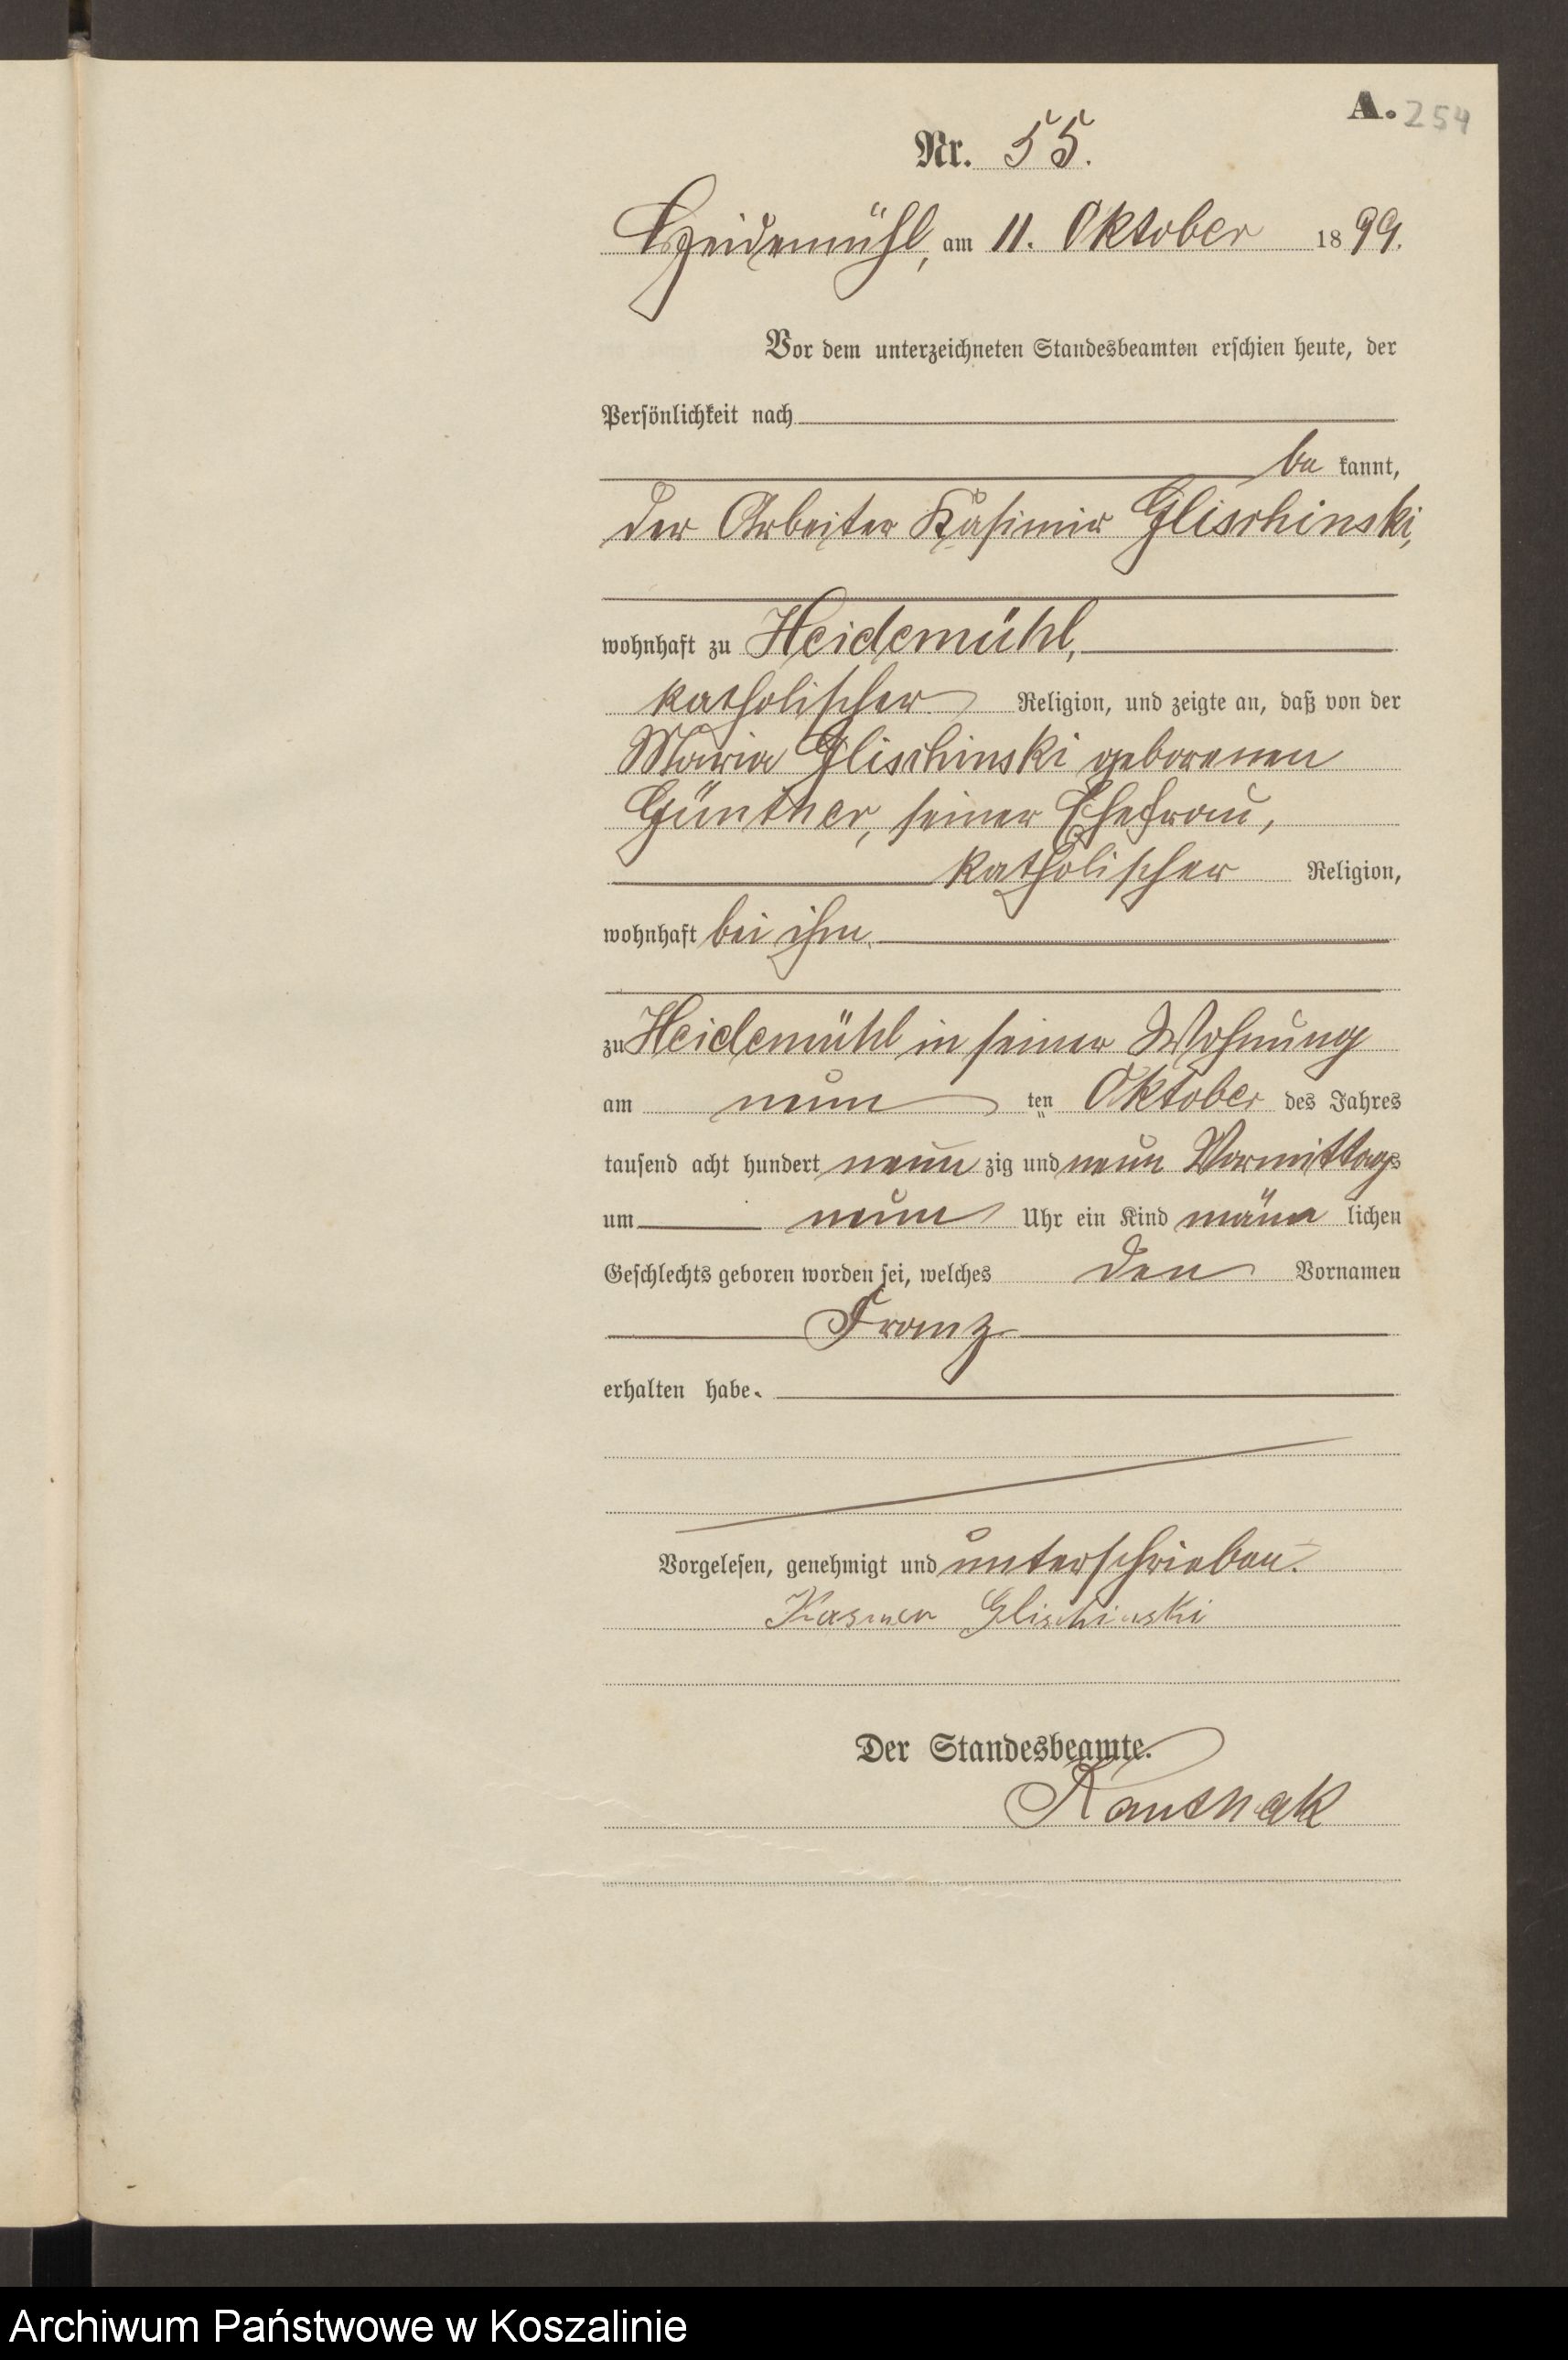 A. 254
Nr. 55.
Heidemühl, am 11. Oktober 1899.
Vor dem unterzeichneten Standesbeamten erschien heute, der
Persönlichkeit nach
be kannt,
der Arbeiter Kasimir Glischinski,
wohnhaft zu Heidemühl,
katholischer Religion, und zeigte an, daß von der
Maria Glischinski geborenen
Günther, seiner Ehefrau,
katholischer Religion,
wohnhaft bei ihm,
zu Heidemühl in seiner Wohnung
am neun ten Oktober des Jahres
tausend acht hundert neun zig und neun Vormittags
um neun Uhr ein Kind männ lichen
Geschlechts geboren worden sei, welches den Vornamen
Franz
erhalten habe.
Vorgelesen, genehmigt und unterschrieben.
Glischinski
Der Standesbeamte.
Archiwum Państwowe w Koszalinie